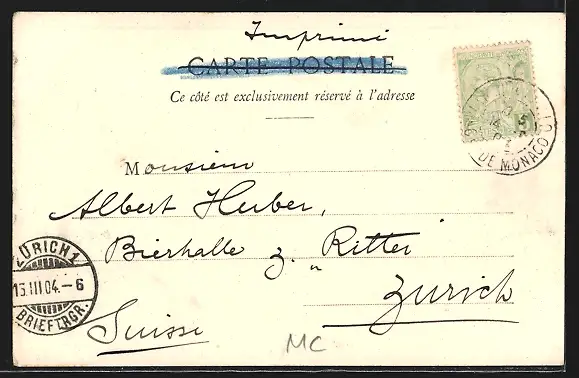 Imprimé
CARTE POSTALE
Ce côté est exclusivement réservé à l'adresse
Monsieur
Albert Huber,
Bierhalle z. „ Ritter
Zurich
Suisse
MC
ZÜRICH 1
15.III.04.-6
BRIEFTRGR.
DE MONACO
5